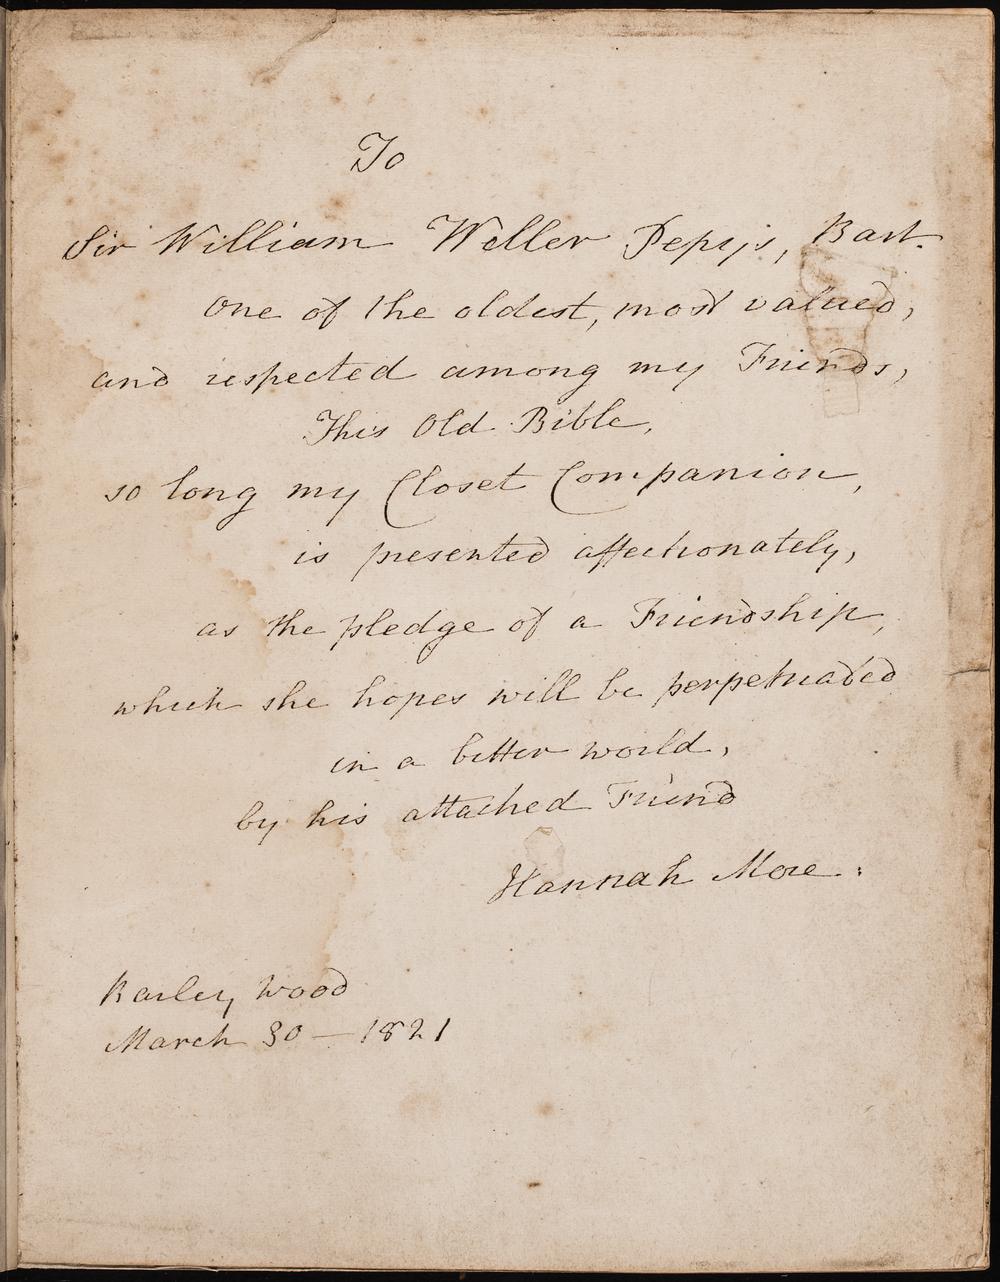 To
Sir William Weller Pepys, Bart.
one of the oldest, most valued,
and respected among my Friends,
This Old Bible,
so long my Closet Companion,
is presented affectionately,
as the pledge of a Friendship,
which she hopes will be perpetuated
in a better world,
by his attached Friend
Hannah More.
Barley Wood
March 30 — 1821